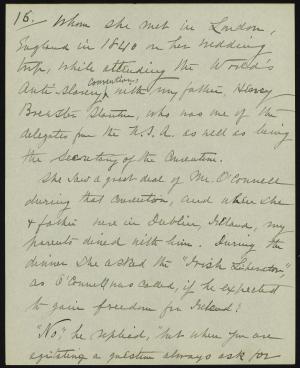 15. Whom she met in London,
England in 1840 on her wedding
trip, while attending the World's
Convention
Anti-Slavery with my father, Henry
Brewster Stanton, who was one of the
delegates from the U.S.A. as well as being
the Secretary of the Convention.
She saw a great deal of Mr. O'Connell
during that convention, and when she
& father were in Dublin, Ireland, my
parents dined with him. During the
dinner she asked the "Irish Liberator",
as O'Connell was called, if he expected
to gain freedom for Ireland?
"No," he replied, "but when you are
agitating a question always ask for